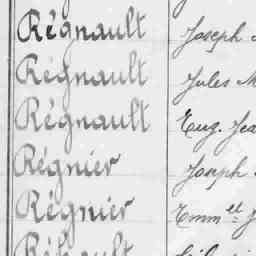 Régnault Joseph
Régnault Jules M
Régnault Eug. Jea
Régnier Joseph
Régnier Emm.et J